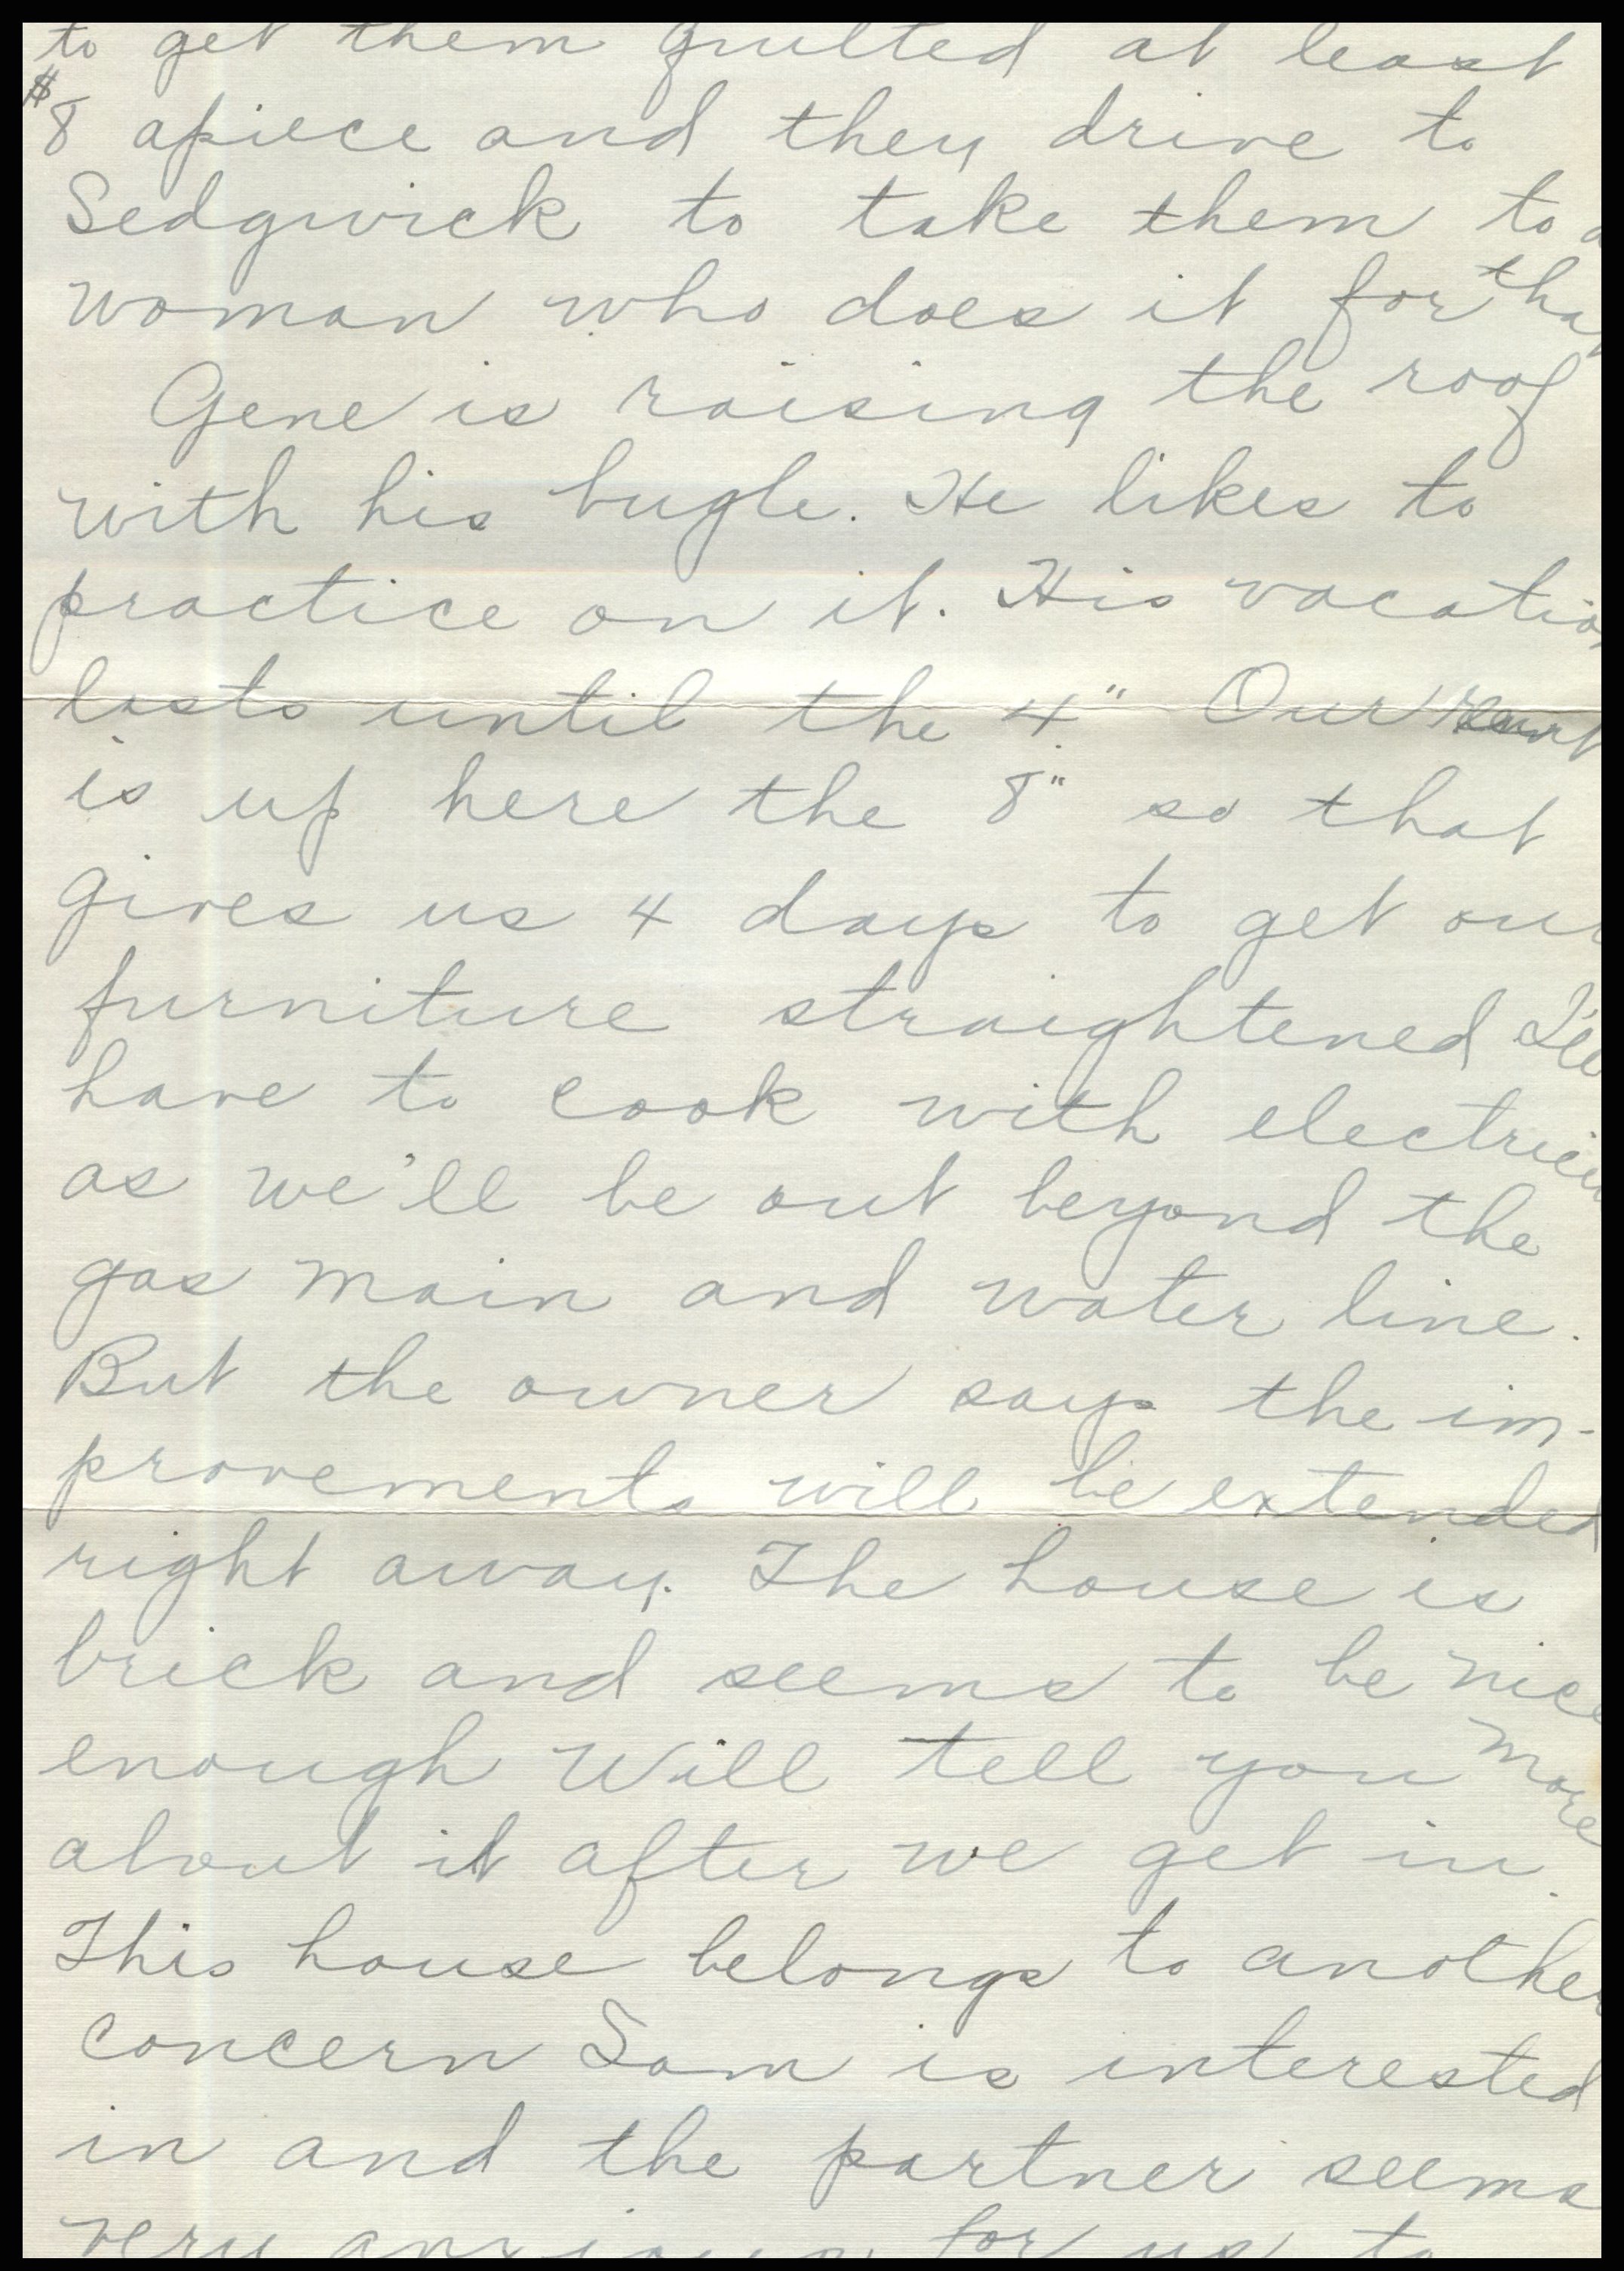 to get them quilted at least
$8 apiece and they drive to
Sedgwick to take them to a
woman who does it for tha
Gene is raising the roof
with his bugle. He likes to
practice on it. His vacatio
lasts until the 4" Our rent
is up here the 8" so that
gives us 4 days to get our
furniture straightened I'll
have to cook with electrici
as we'll be out beyond the
gas main and water line.
But the owner says the im-
provements will be extended
right away. The house is
brick and seems to be nice
enough Will tell you more
about it after we get in.
This house belongs to another
concern Sam is interested
in and the partner seems
very anxious for us to